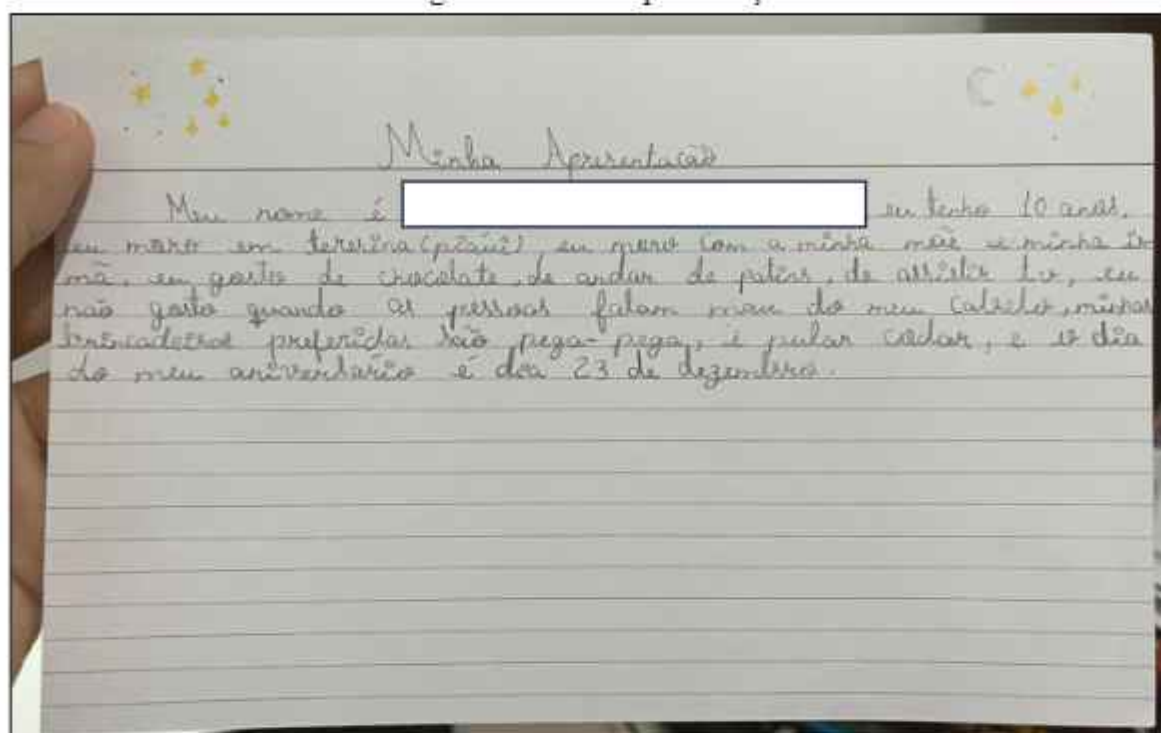 Minha Apresentação
Meu nome é eu tenho 10 anos,
eu moro em teresina (piauí) eu moro com a minha mãe e minha ir
mã, eu gosto de chocolate, de andar de patins, de assistir tv, eu
não gosto quando as pessoas falam mau do meu cabelo, minhas
brincadeiras preferidas são pega-pega, e pular codar, e o dia
do meu aniversário é dia 23 de dezembro.